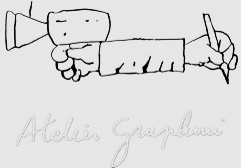 Atelier Graphoui